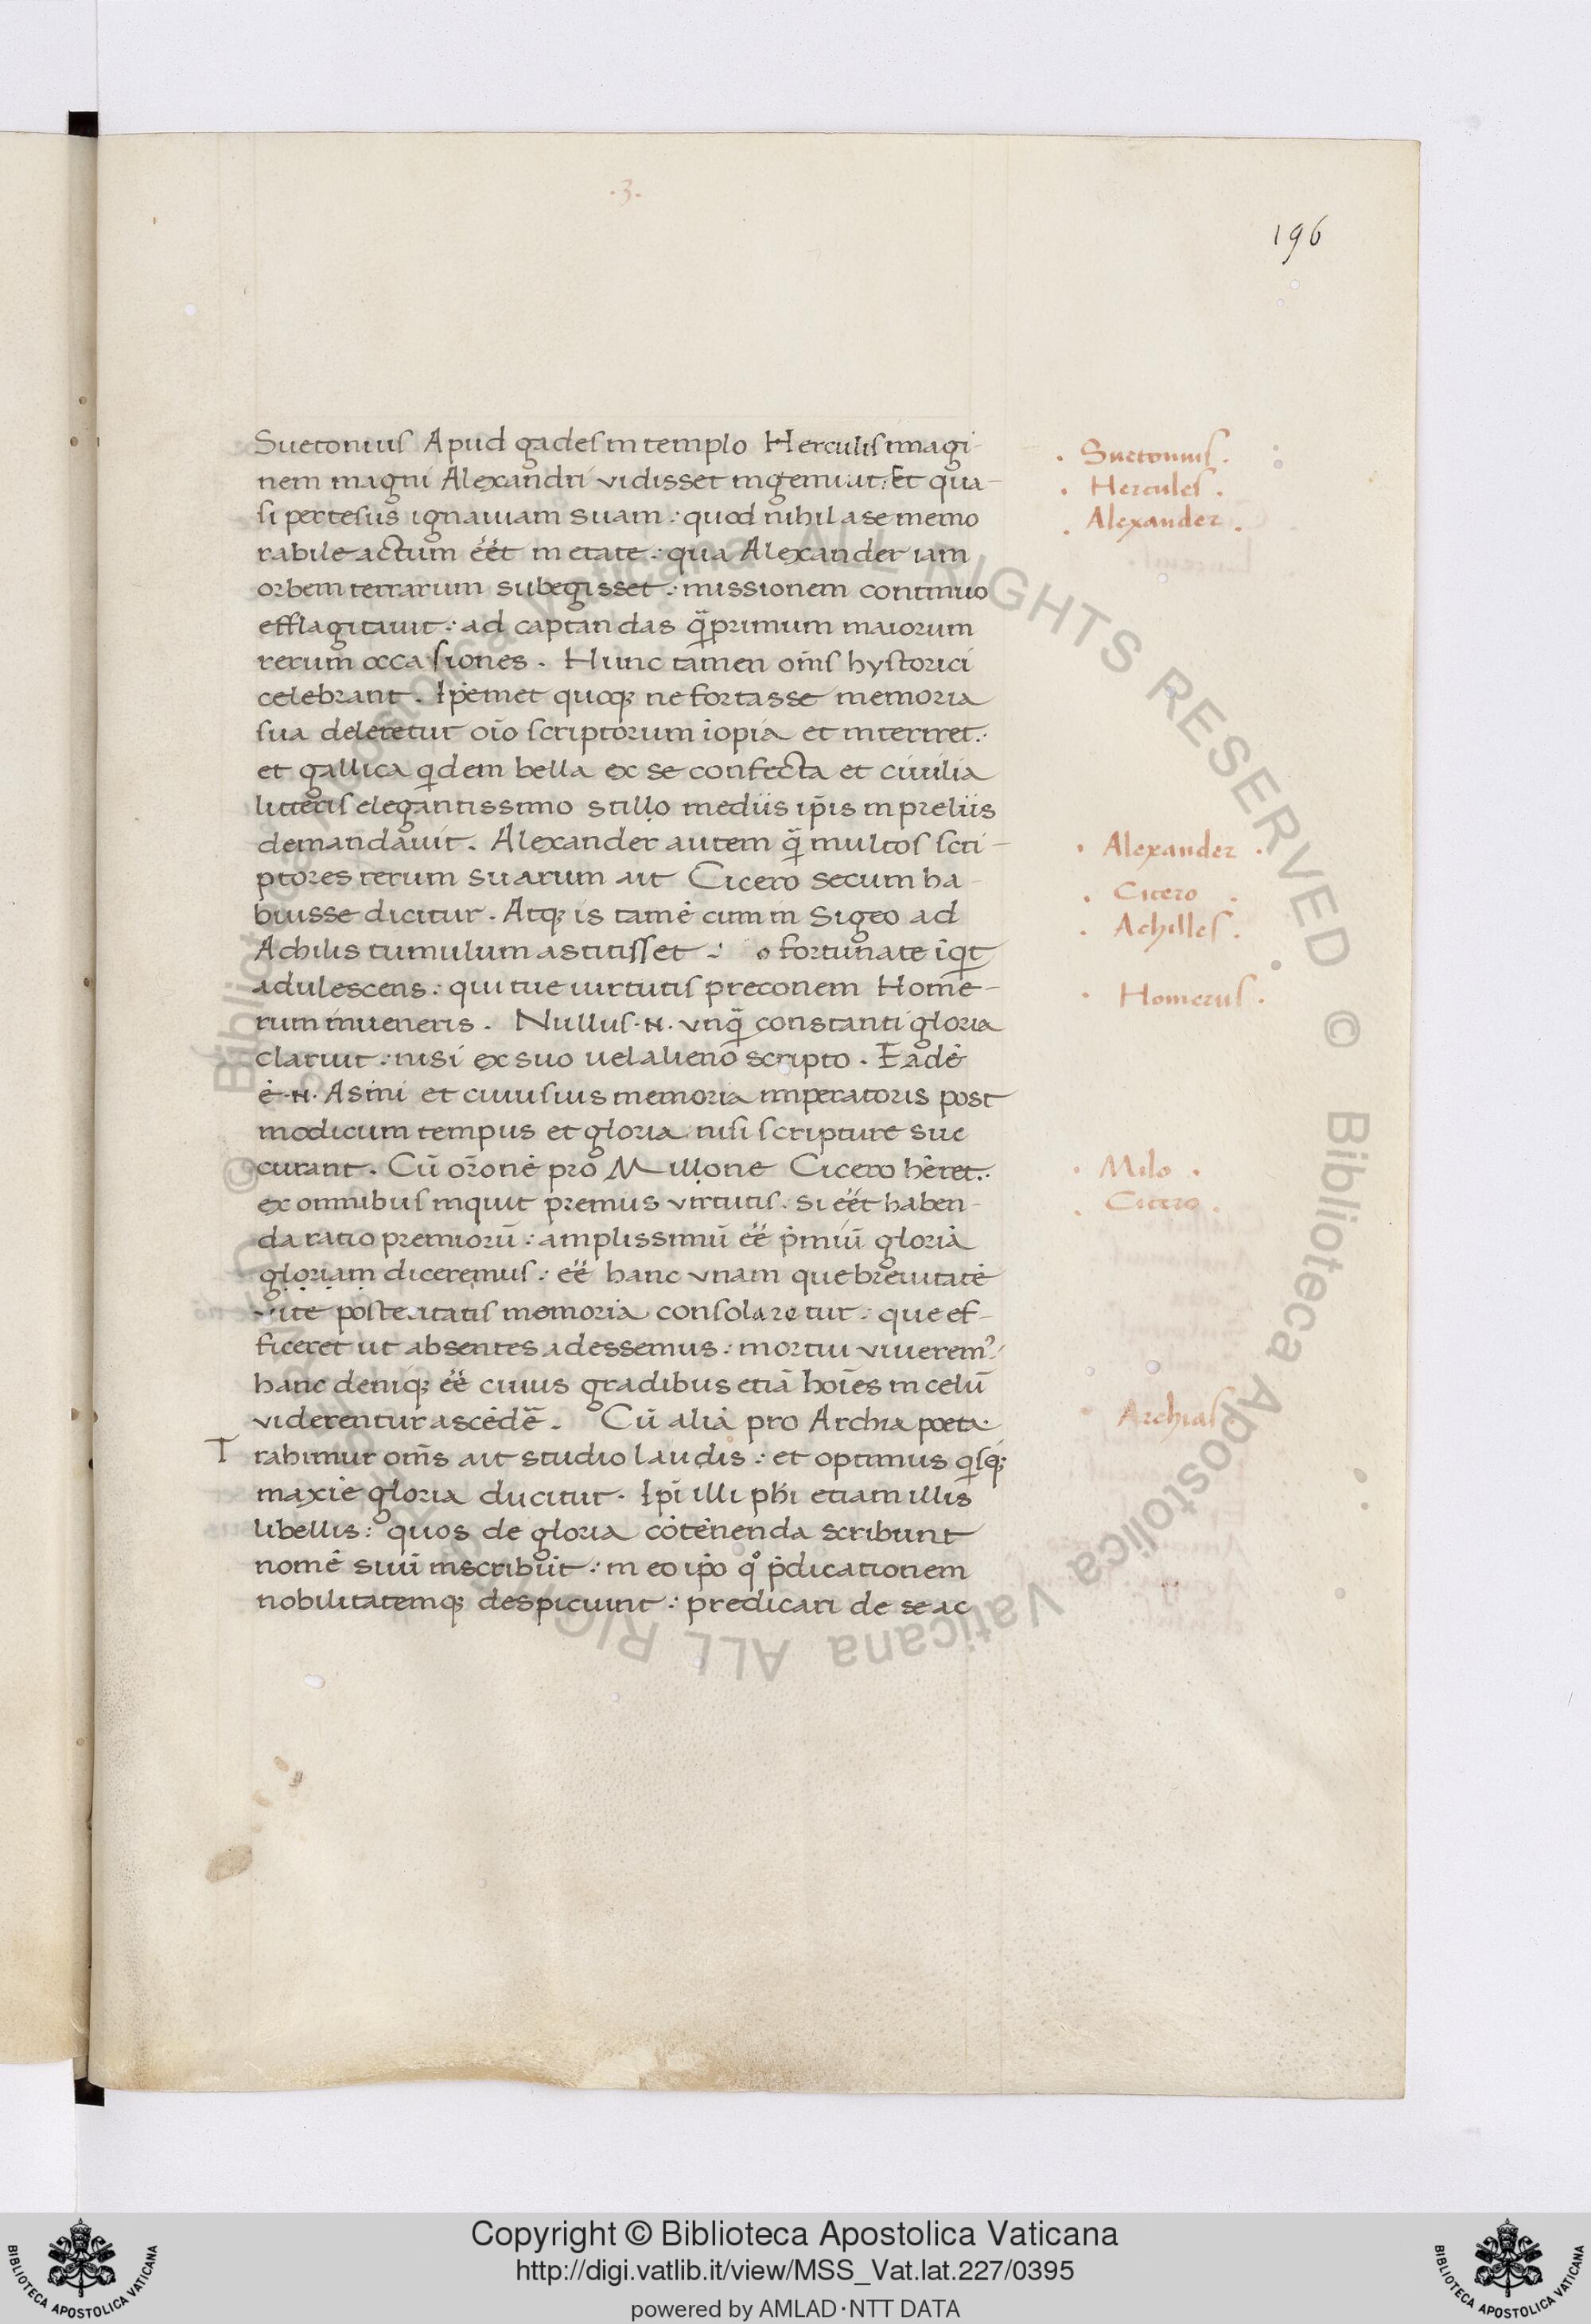 .3.
196
Suetonius Apud gades in templo Herculis imagi-
nem magni Alexandri vidisset ingemuit: Et qua-
si pertesus ignauiam suam: quod nihil a se memo
rabile actum eēt in etate: qua Alexander iam
orbem terrarum subegisset: missionem continuo
efflagitauit: ad captandas q̄primum maiorum
rerum occasiones. Hunc tamen om̄s hystorici
celebrant. Ip̄emet quoq; ne fortasse memoria
sua deleretur oīo scriptorum īopia et interiret:
et gallica qͥdem bella ex se confecta et ciuilia
litteris elegantissimo stillo mediis ip̄is in preliis
demandauit. Alexander autem q̄ multos scri-
ptores rerum suarum ait Cicero secum ha-
buisse dicitur. Atq; is tamē cum in Sigeo ad
Achilis tumulum astitisset: o fortunate īqͥt
adulescens: qui tue uirtutis preconem Home-
rum inueneris. Nullus .n. vnq̄ constanti gloria
claruit: nisi ex suo uel alieno scripto. Eadē
ē .n. Asini et cuiusuis memoria imperatoris post
modicum tempus et gloria nisi scripture suc
curant. Cū or̄onē pro Millone Cicero hēret:
ex omnibus inquit premiis virtutis. si eēt haben-
da ratio premiorū: amplissimū eē p̄miū gloriā
gloriam diceremus: eē hanc vnam que breuitatē
vite posteritatis memoria consolaretur: que ef-
ficeret ut absentes adessemus: mortui viuerem⁹:
hanc deniq; eē cuius gradibus etiā hoīes in celū
viderentur ascēdē̄. Cū aliā pro Archia poeta:
Trahimur om̄s ait studio laudis: et optimus qͥsq;
maxīe gloria ducitur. Ip̄i illi ph̄i etiam illis
libellis: quos de gloria cōtēnenda scribunt
nomē suū inscribūt: in eo ip̄o qͦ p̄dicationem
nobilitatemq; despiciunt: predicari de se ac
. Suetonius .
. Hercules .
. Alexander .
. Alexander .
. Cicero .
. Achilles .
. Homerus .
. Milo .
. Cicero .
. Archias .
© Biblioteca Apostolica Vaticana ALL RIGHTS RESERVED © Biblioteca Apostolica Vaticana ALL RIGHTS RESERVED
Copyright © Biblioteca Apostolica Vaticana
http://digi.vatlib.it/view/MSS_Vat.lat.227/0395
powered by AMLAD·NTT DATA
BIBLIOTECA APOSTOLICA VATICANA
BIBLIOTECA APOSTOLICA VATICANA